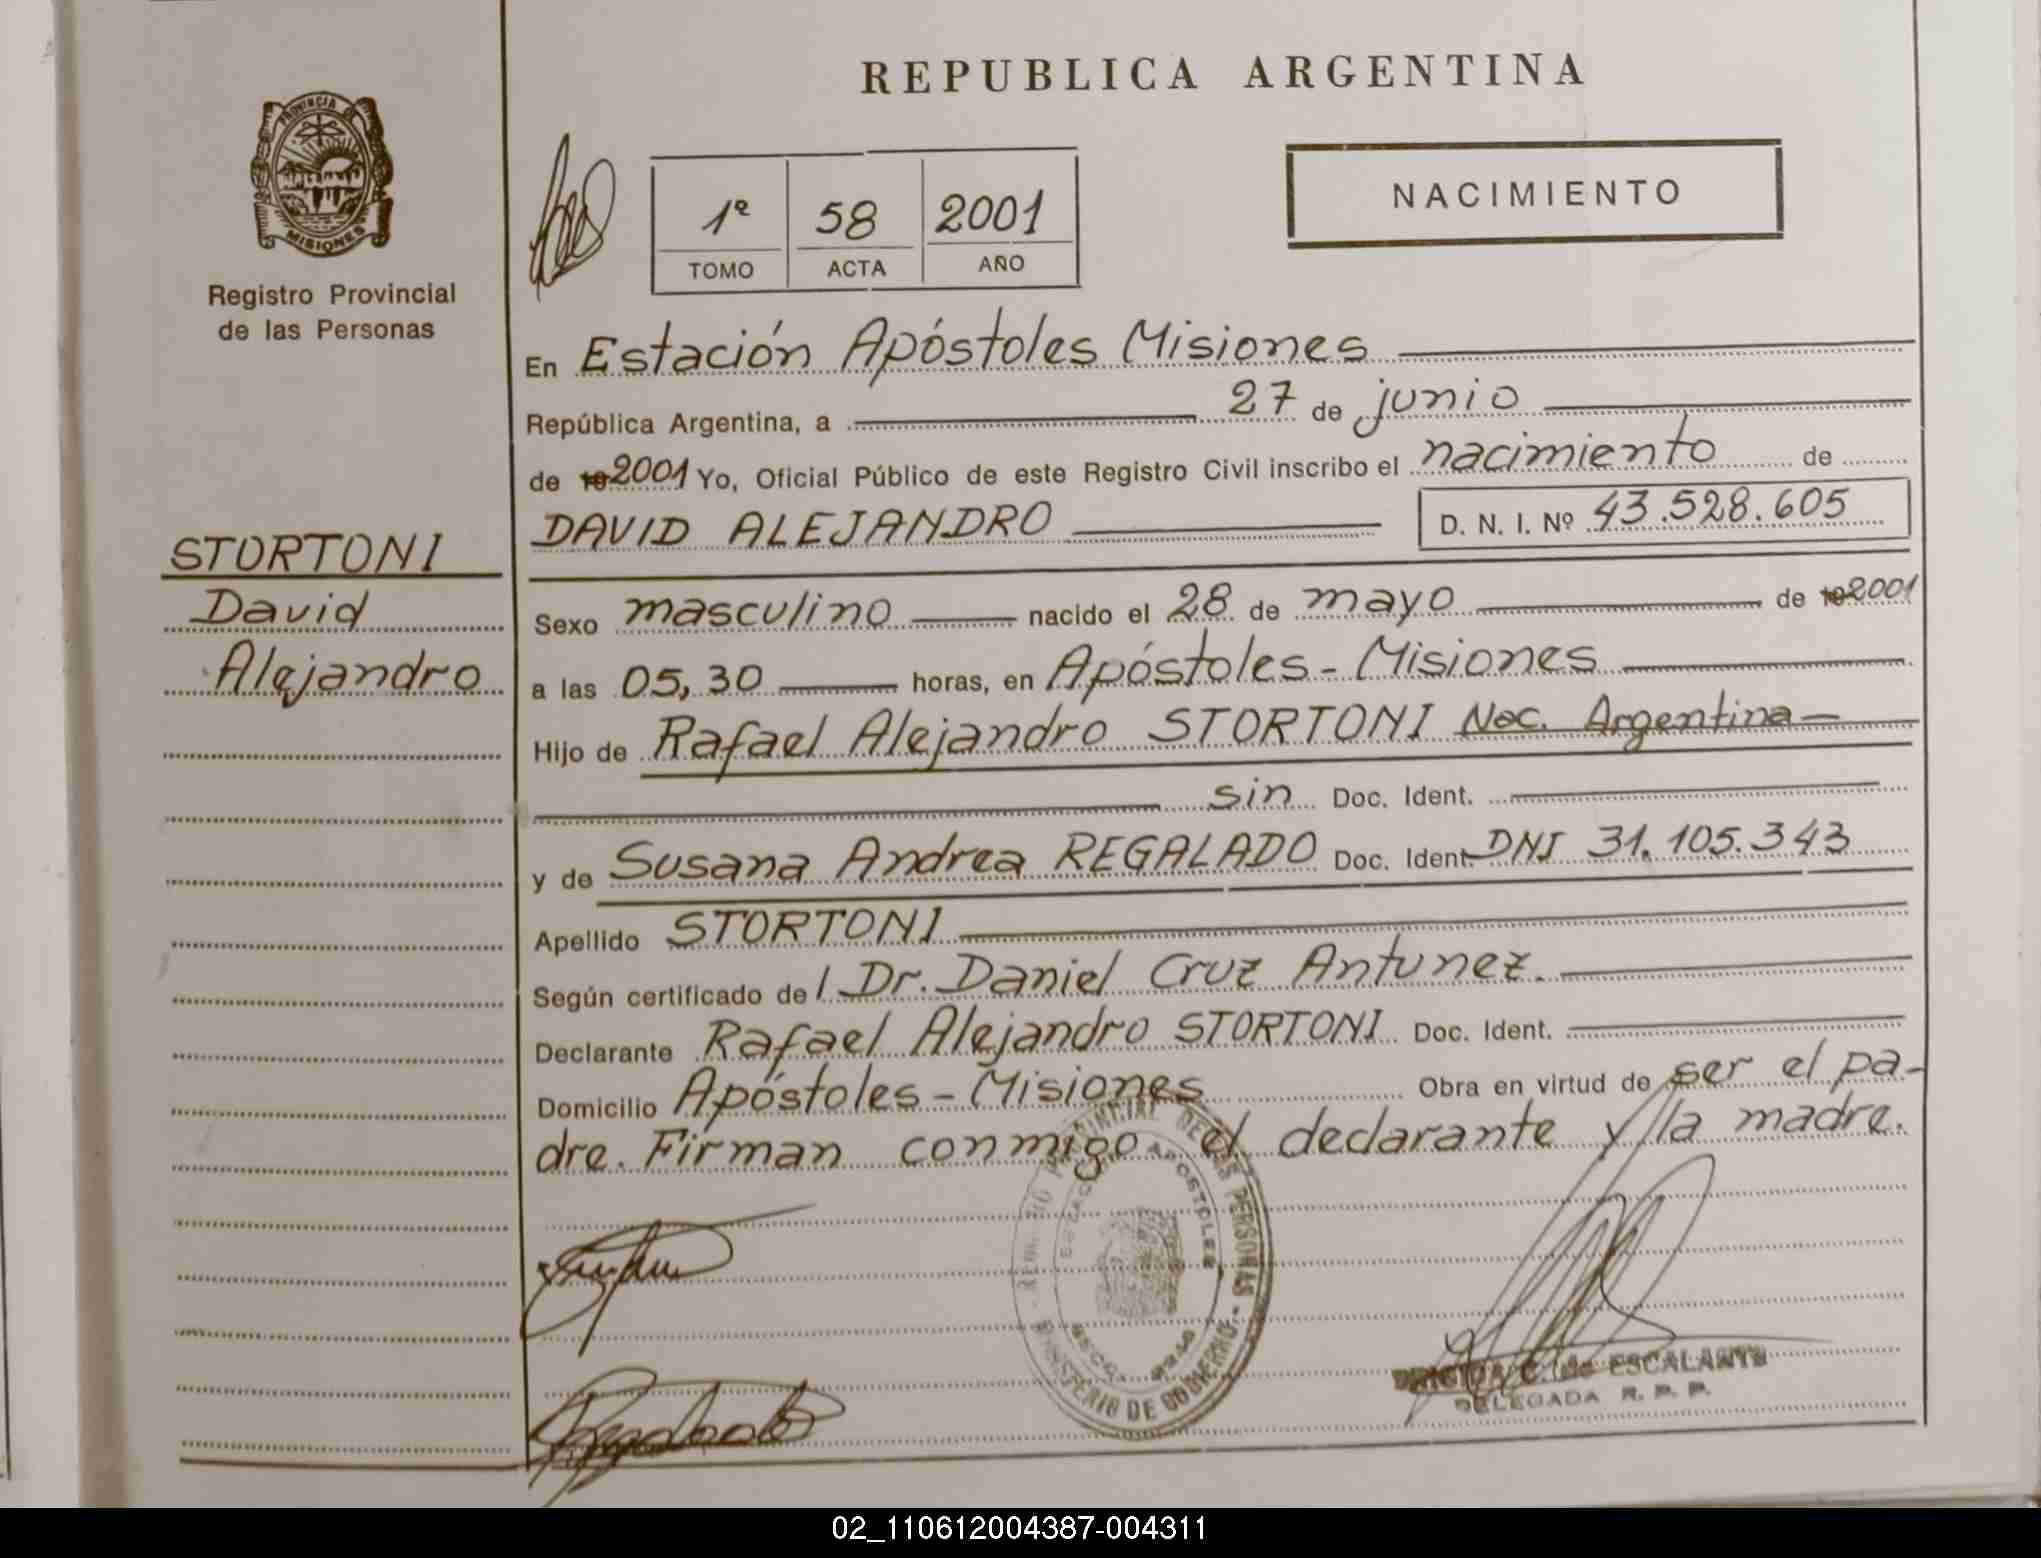 REPUBLICA ARGENTINA
PROVINCIA DE
MISIONES
Registro Provincial
de las Personas
1º 58 2001
TOMO ACTA AÑO
NACIMIENTO
En Estación Apóstoles Misiones
República Argentina, a 27 de junio
de 19 2001 Yo, Oficial Público de este Registro Civil inscribo el nacimiento de
DAVID ALEJANDRO D. N. I. Nº 43.528.605
STORTONI
David
Alejandro
Sexo masculino nacido el 28 de mayo de 19 2001
a las 05,30 horas, en Apóstoles - Misiones
Hijo de Rafael Alejandro STORTONI Nac. Argentina
sin Doc. Ident.
y de Susana Andrea REGALADO Doc. Ident. DNI 31.105.343
Apellido STORTONI
Según certificado del Dr. Daniel Cruz Antunez.
Declarante Rafael Alejandro STORTONI Doc. Ident.
Domicilio Apóstoles - Misiones Obra en virtud de ser el pa-
dre. Firman conmigo el declarante y la madre.
REGISTRO PROVINCIAL DE LAS PERSONAS
MINISTERIO DE GOBIERNO
APOSTOLES
C. de ESCALANTE
DELEGADA R. P. P.
02_110612004387-004311